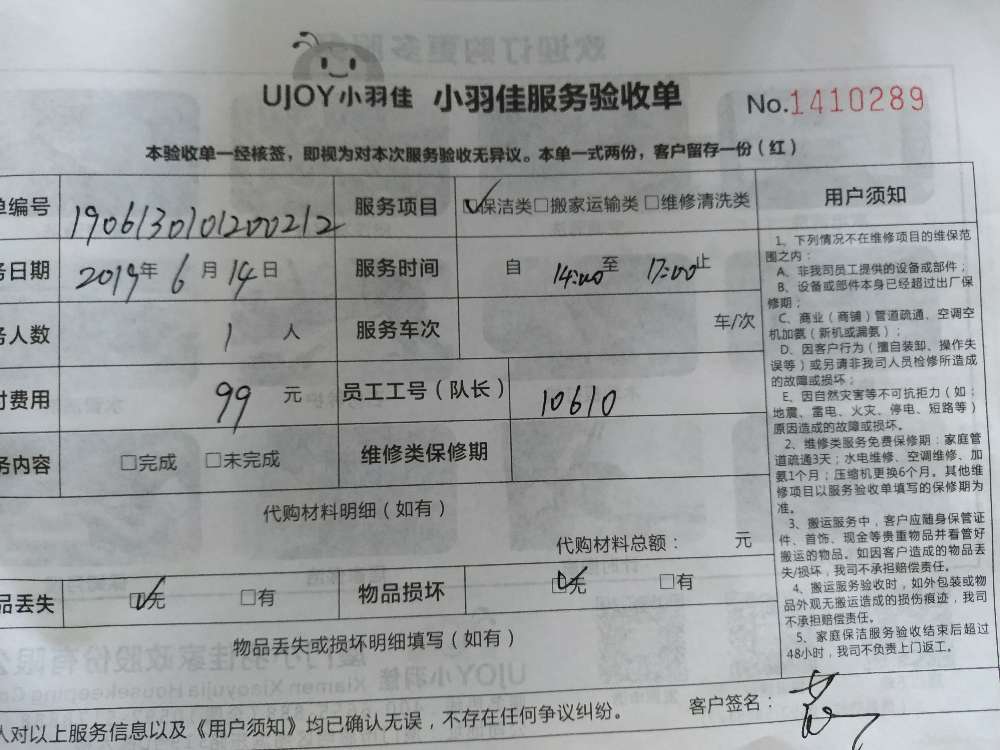 UJOY小羽佳 小羽佳服务验收单 No.1410289
本验收单一经核签，即视为对本次服务验收无异议。本单一式两份，客户留存一份（红）
单编号 1906130101200212 服务项目 保洁类□搬家运输类□维修清洗类
务日期 2019年6月14日 服务时间 自14:00至17:00止
务人数 1人 服务车次 车/次
付费用 99元 员工工号（队长） 10610
务内容 □完成 □未完成 维修类保修期
代购材料明细（如有）
代购材料总额： 元
品丢失 无 □有 物品损坏 无 □有
物品丢失或损坏明细填写（如有）
人对以上服务信息以及《用户须知》均已确认无误，不存在任何争议纠纷。 客户签名：
用户须知
1、下列情况不在维修项目的维保范
围之内：
A、非我司员工提供的设备或部件；
B、设备或部件本身已经超过出厂保
修期；
C、商业（商铺）管道疏通、空调空
机加氨（新机或漏氨）；
D、因客户行为（擅自装卸、操作失
误等）或另请非我司人员检修所造成
的故障或损坏；
E、因自然灾害等不可抗拒力（如：
地震、雷电、火灾、停电、短路等）
原因造成的故障或损坏。
2、维修类服务免费保修期：家庭管
道疏通3天；水电维修、空调维修、加
氨1个月；压缩机更换6个月。其他维
修项目以服务验收单填写的保修期为
准。
3、搬运服务中，客户应随身保管证
件、首饰、现金等贵重物品并看管好
搬运的物品。如因客户造成的物品丢
失/损坏，我司不承担赔偿责任。
4、搬运服务验收时，如外包装或物
品外观无搬运造成的损伤痕迹，我司
不承担赔偿责任。
5、家庭保洁服务验收结束后超过
48小时，我司不负责上门返工。